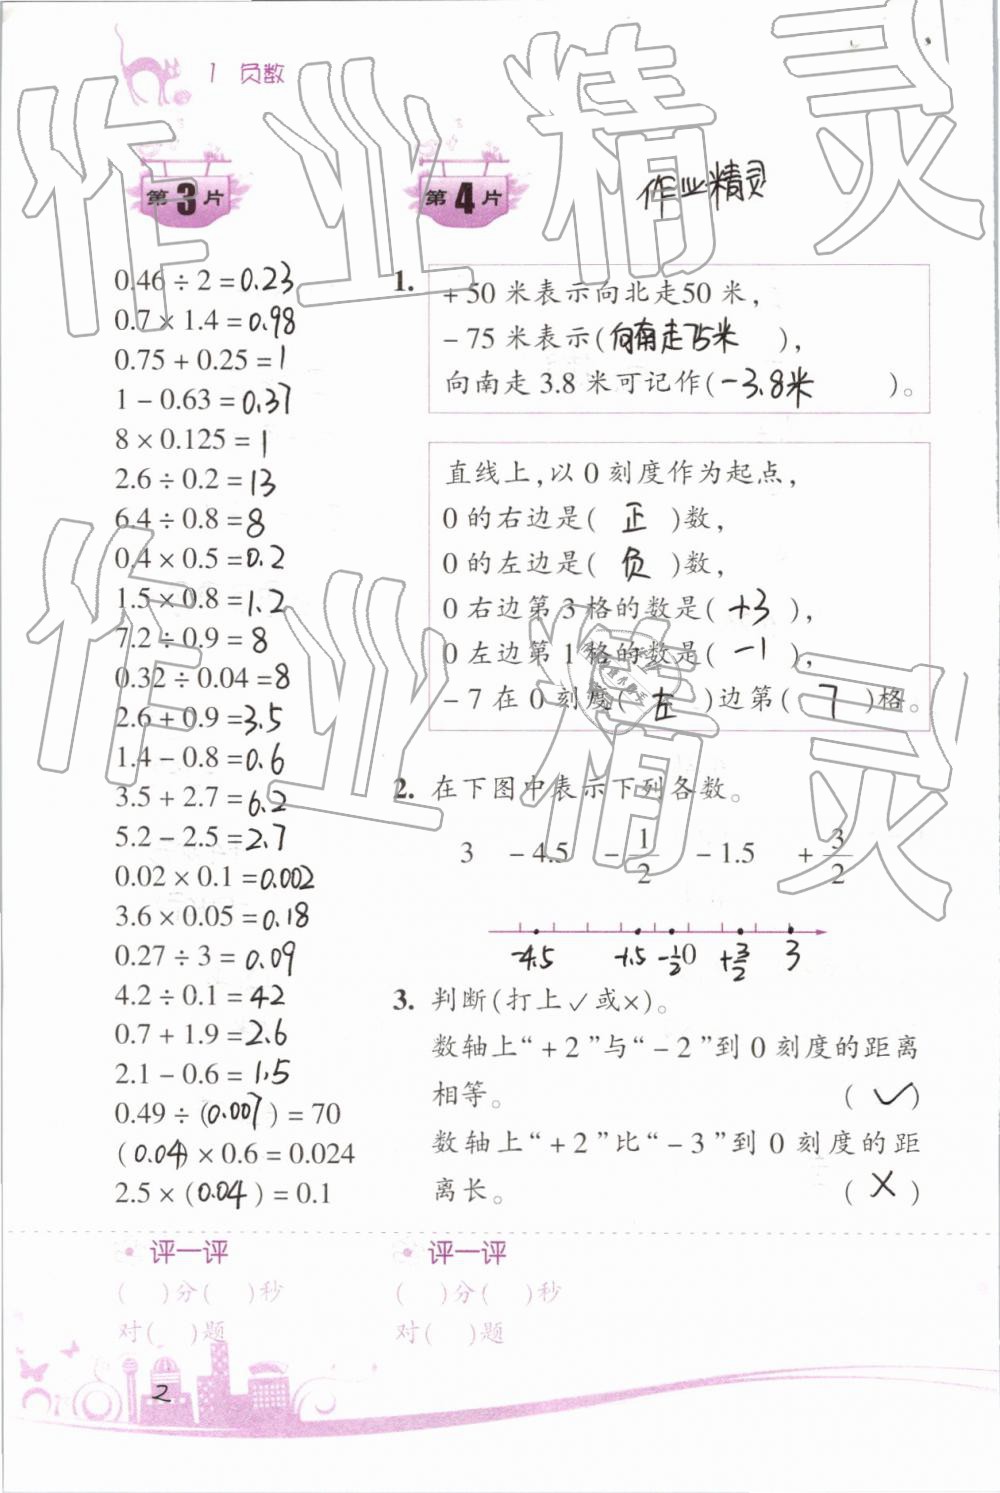 1 负数
第3片
0.46÷2=0.23
0.7×1.4=0.98
0.75+0.25=1
1-0.63=0.37
8×0.125=1
2.6÷0.2=13
6.4÷0.8=8
0.4×0.5=0.2
1.5×0.8=1.2
7.2÷0.9=8
0.32÷0.04=8
2.6+0.9=3.5
1.4-0.8=0.6
3.5+2.7=6.2
5.2-2.5=2.7
0.02×0.1=0.002
3.6×0.05=0.18
0.27÷3=0.09
4.2÷0.1=42
0.7+1.9=2.6
2.1-0.6=1.5
0.49÷(0.007)=70
(0.04)×0.6=0.024
2.5×(0.04)=0.1
评一评
( )分( )秒
对( )题
第4片
作业精灵
1.
+50米表示向北走50米,
-75米表示(向南走75米),
向南走3.8米可记作(-3.8米)。
直线上,以0刻度作为起点,
0的右边是(正)数,
0的左边是(负)数,
0右边第3格的数是(+3),
0左边第1格的数是(-1),
-7在0刻度(左)边第(7)格。
2. 在下图中表示下列各数。
3 -4.5 -1/2 -1.5 +3/2
-4.5 -1.5 -1/2 0 +3/2 3
3. 判断(打上✓或×)。
数轴上“+2”与“-2”到0刻度的距离
相等。 (✓)
数轴上“+2”比“-3”到0刻度的距
离长。 (×)
评一评
( )分( )秒
对( )题
2
作业精灵
作业精灵